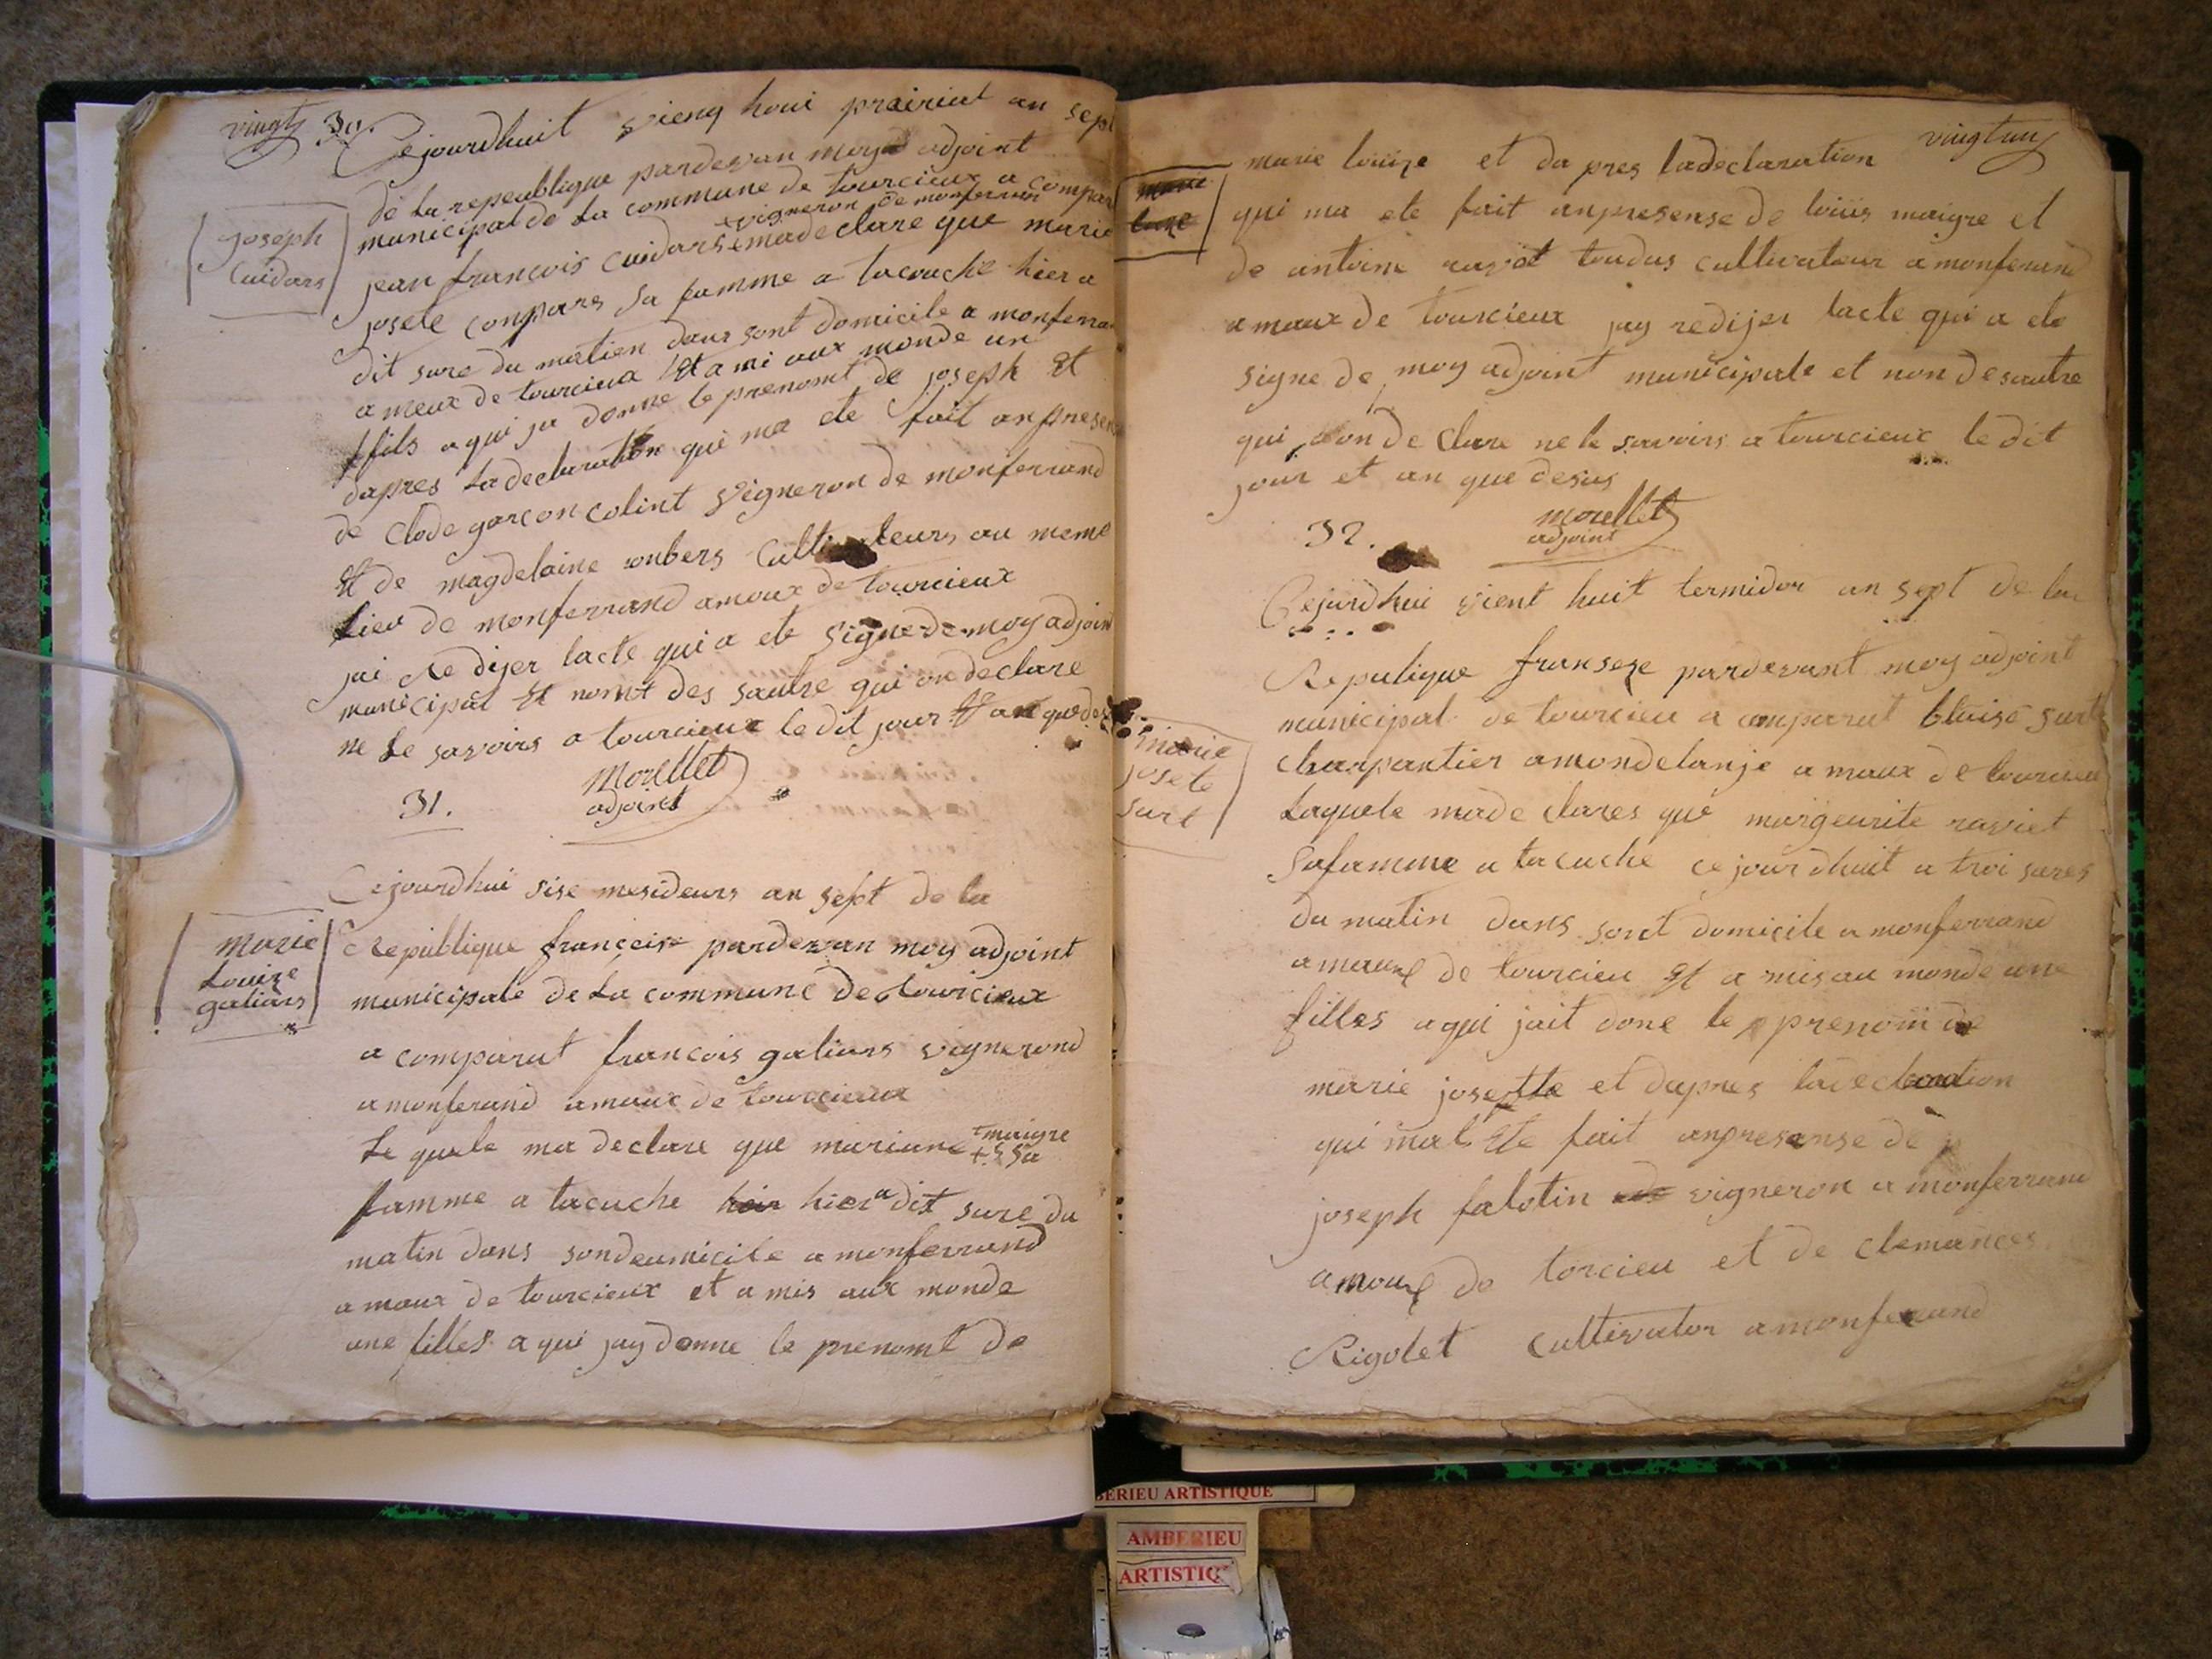 vingt
30.
Cejourdhuit vieng houi prairial an sept
de la repeublique pardevan moy adjoint
municipal de la commune de tourcieux a compar
+ vigneron de monferran
jean francois cuidars + ma declare que marie
josete compars sa famme a lacouche hier a
dit sure du matien dans sont domicile a monferran
a meux de tourcieu Et a mi aux monde un
fils a qui ja donne le prenomt de joseph Et
dapres la declaration qui ma ete fait anpresen
de Clode garcon colint vigneron de monferrand
Et de magdelaine conbers Cultivateurs au meme
Lieu de monferrand amoux de tourcieux
jai Redijer lacte qui a ete signe de moy adjoin
municipal Et nomt des sautre qui on declare
ne Le savoirs a tourcieux le dit jour Et an que des
Morellet
adjoint
joseph
Cuidars
31.
Cejourdhui sise mesideurs an sept de la
Republique françeise pardevan moy adjoint
municipale de La commune de tourcieux
a comparut francois galians vignerond
a monferand amaux de tourcieux
Le quele ma declare que mariane + maigre
+ s sa
famme a lacuche hier a dit sure du
matin dans sondeumicile a monferrand
a maux de tourcieux et a mis aux monde
une filles a qui jay donne le prenomt de
marie
Louize
galians
vingtun
marie louize et da pres ladeclaration
qui ma ete fait anpresense de louis maigre et
de antoine ravot toudus cultivateur a monferand
a maux de tourcieux jay redijer lacte qui a ete
signe de moy adjoint municipale et non desautre
qui on declare ne le savoirs a tourcieux le dit
jour et an que desus
morellet
adjoint
32.
Cejurdhui vient huit termidor an sept de la
Republique franseze pardevant moy adjoint
municipal de tourcieu a comparut blaise surt
charpantier amondelanje a maux de tourcieu
Laquele made clares que margeurite raviet
Safamme a lacuche ce jourdhuit a troi sares
du matin dans sont domicile a monferrand
a maux de tourcieu Et a mis au monde une
filles a qui jait done le prenom de
marie josette et dapres ladeclaration
qui mat Ete fait anpresense de
joseph falotin vigneron a monferrand
amoux de torcieu et de clemances
Rigolet Cultivator a monferand
marie
josete
surt
BERIEU ARTISTIQUE
AMBERIEU
ARTISTIQ